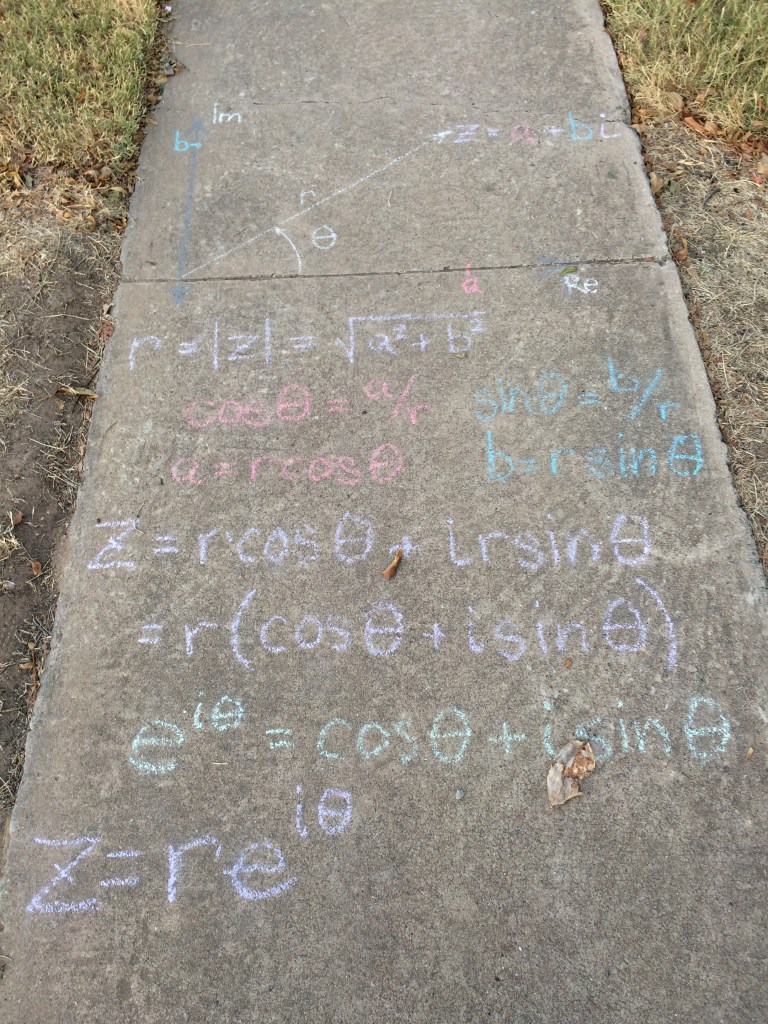 Im
b z = a + bi
r
θ
a Re
r = |z| = √a² + b²
cosθ = a/r sinθ = b/r
a = r cosθ b = r sinθ
z = r cosθ + i r sinθ
= r(cosθ + i sinθ)
e^iθ = cosθ + i sinθ
z = re^iθ